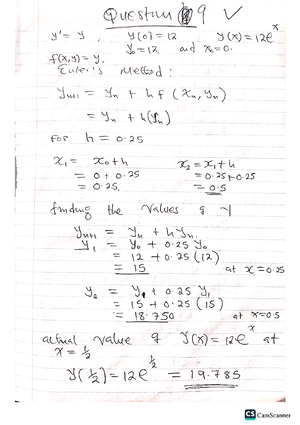 Question 9
y' = y , y(0) = 12 y(x) = 12e^x
y₀ = 12 and x₀ = 0.
f(x,y) = y.
Euler's Method:
yₙ₊₁ = yₙ + h f (xₙ, yₙ)
= yₙ + h(yₙ)
For h = 0.25
x₁ = x₀ + h x₂ = x₁ + h
= 0 + 0.25 = 0.25 + 0.25
= 0.25. = 0.5
finding the values of y
yₙ₊₁ = yₙ + h yₙ.
y₁ = y₀ + 0.25 y₀
= 12 + 0.25 (12)
= 15 at x = 0.25
y₂ = y₁ + 0.25 y₁
= 15 + 0.25 (15)
= 18.750 at x = 0.5
actual value of y(x) = 12e^x at
x = 1/2
y(1/2) = 12e^1/2 = 19.785
CS CamScanner